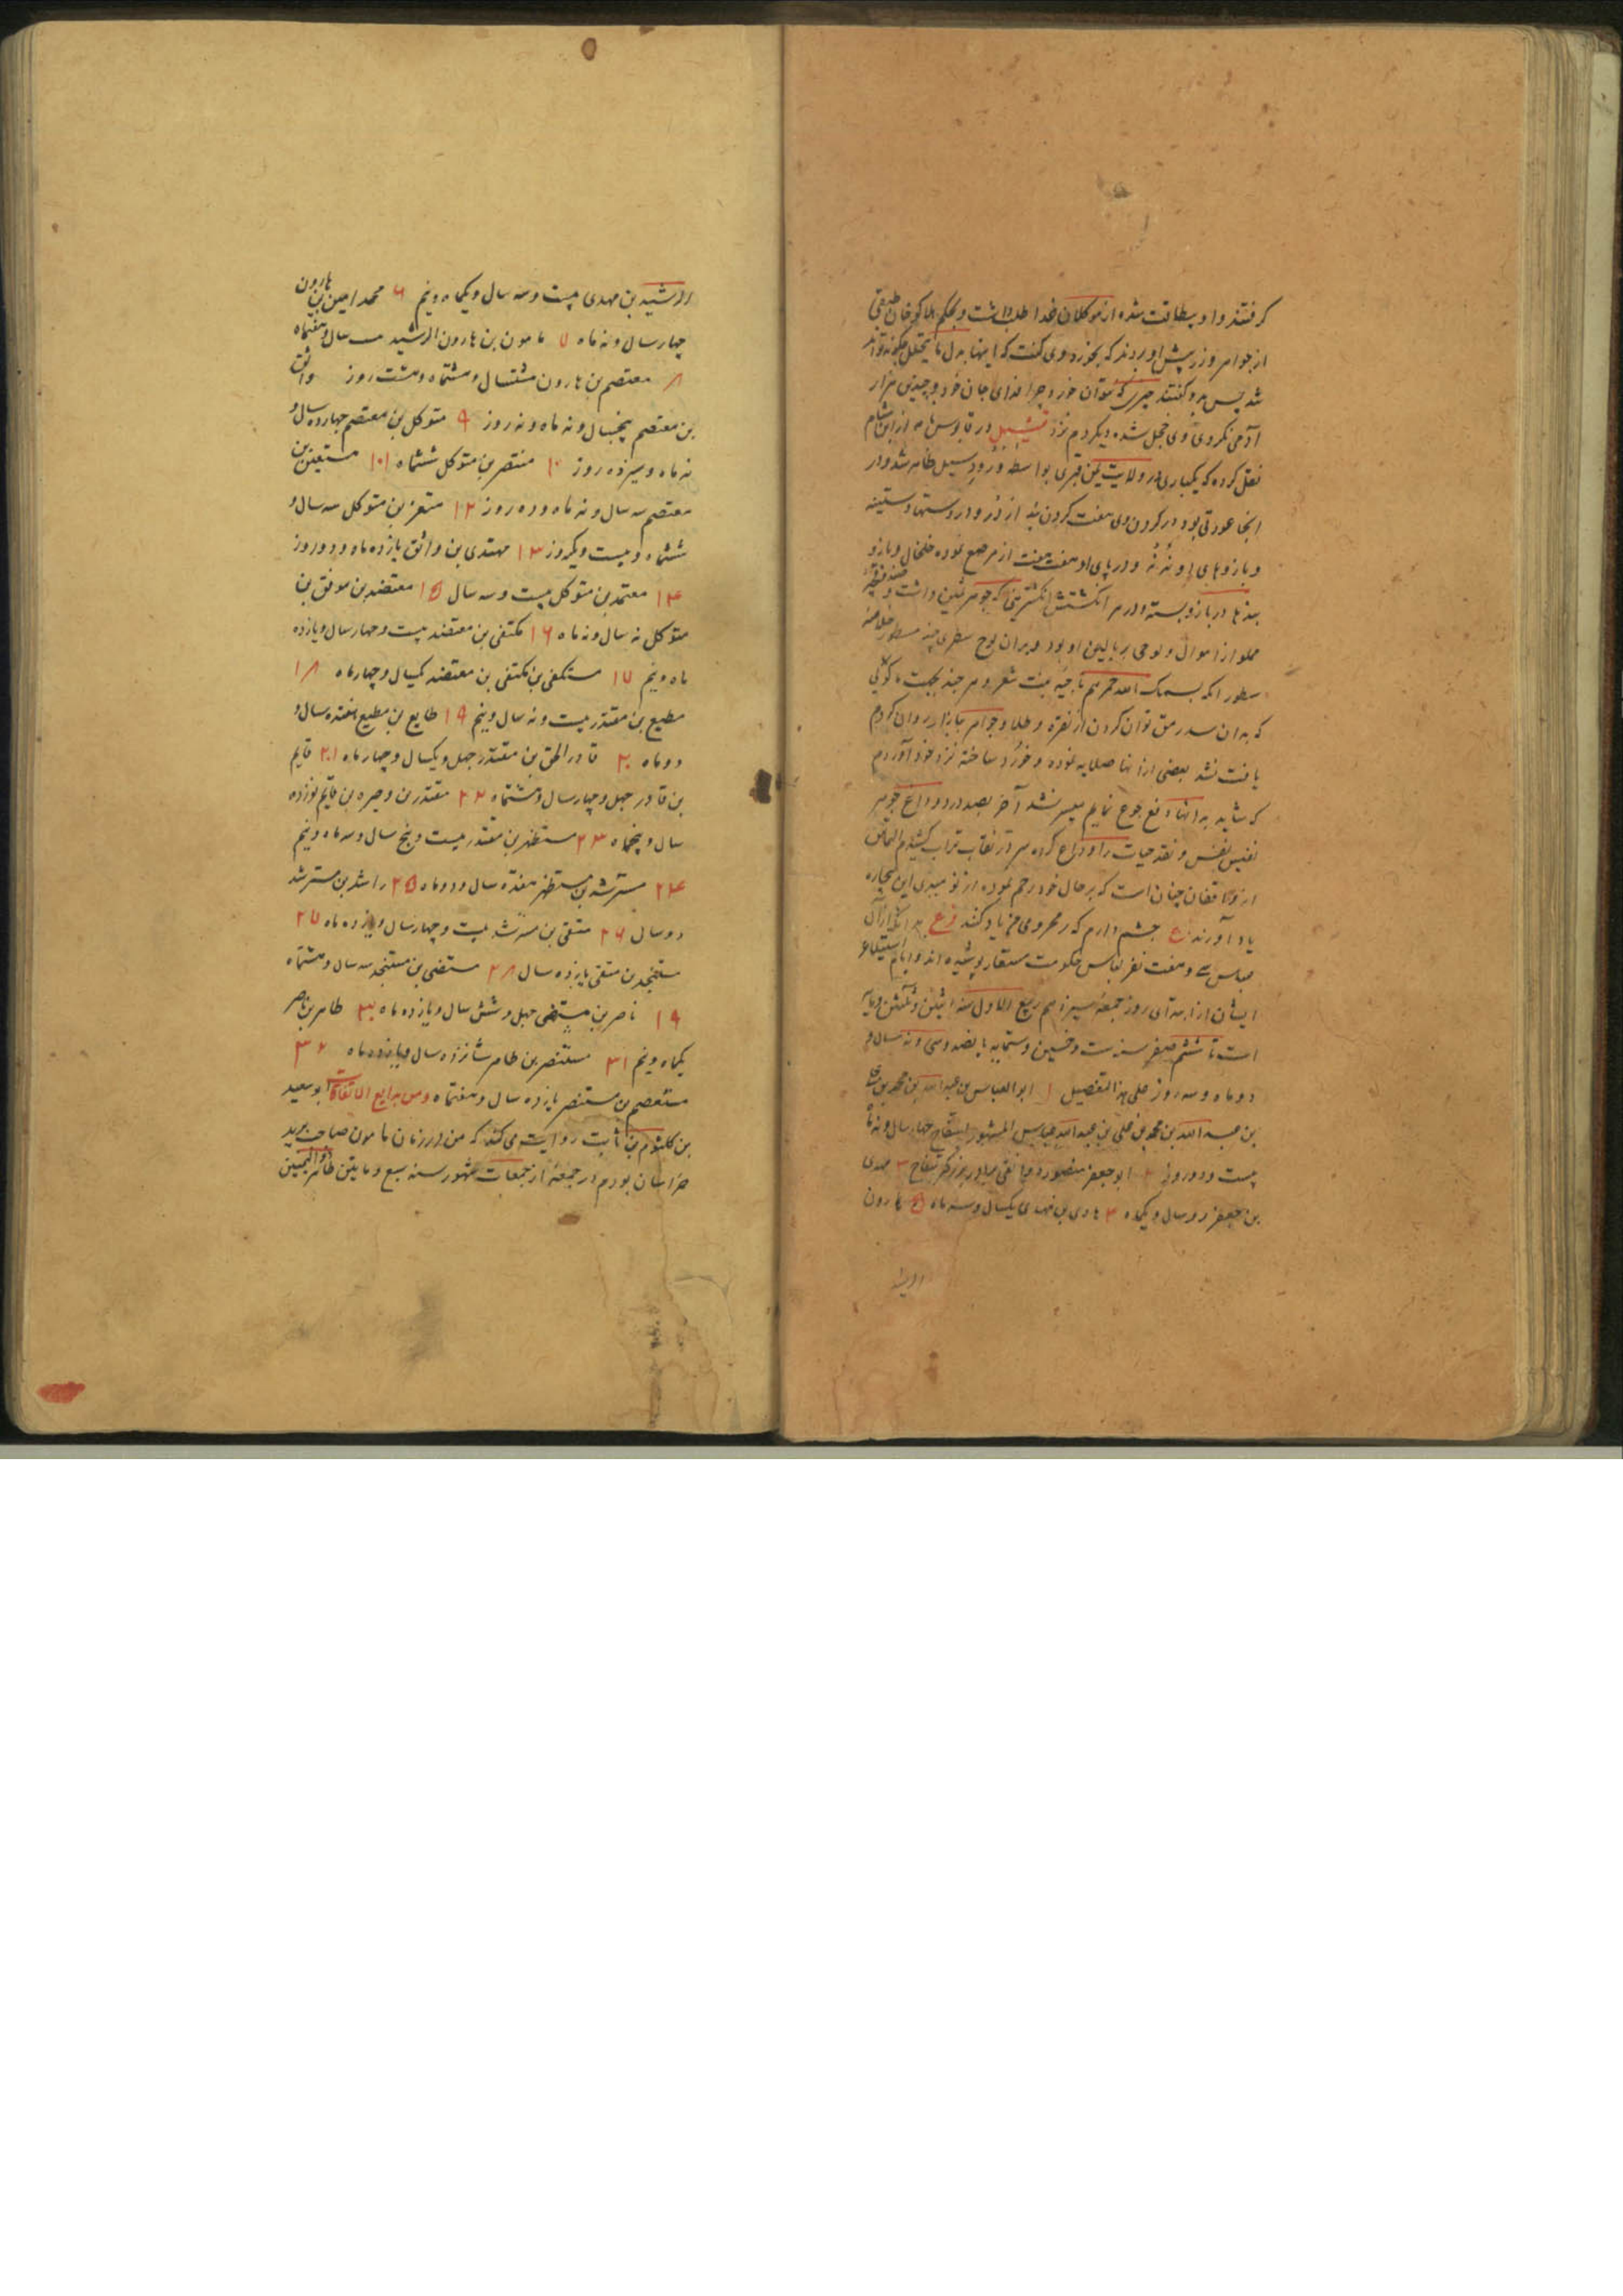 کرفتند و او بیطاقت شده از موکلان غذا طلب داشت و بحکم هلاکو خان طبقی
از جواهر و زر پیش اوردند که بخور وی کفت که اینها بدل ما یتحلل چکونه تواند
شد پس بدو کفتند چیزی که نتوان خورد چرا فدای جان خود و چندین هزار
آدمی نکردی وی خجل شده دیکر دم نزد در قابوس نامه از ابن هشام
نقل کرده که یکباری در ولایت یمن قبری بواسطه ورود سیل ظاهر شد و در
انجا عورتی بود در کردن وی هفت کردن بند از در و در دستها دستینه
و بازوهای او نه نه و در پای او هفت هفت از مرصع نموده خلخال و بازو
بندها در بازو بسته و در هر انکشتش انکشتری که جوهر ثمین داشت و
مملو از اموال و لوحی بر بالین او بود و بران لوح سطری چند مسطور خلاصه
سطور انکه بسمک اللهم
که بدان سد رمق توان کردن از نقره و طلا و جواهر ببازار روان کردم
یافت نشد بعضی ازانها صلایه نموده و خورد ساخته نزد خود آوردم
که شاید بدانها دفع جوع نمایم میسر نشد آخر بصد درد وداع جوهر
نفیس نفس و نقد حیات را وداع کرده سر در نقاب تراب کشیدم التماس
از واقفان چنان است که بر حال خود رحم نموده از نومیدی این بیچاره
یاد آورند ع چشم دارم که ز محرومی من یاد کنند فرع بدانکه از آل
عباس سی و هفت نفر لباس حکومت مستعار پوشیده اند و ایام استیلاء
ایشان از ابتدای روز جمعه سیزدهم ربیع الاول سنه اثنین و ثلثین و مایه
است تا ششم صفر سنه ست و خمسین و ستمایه پانصد و سی و نه سال و
دو ماه و سه روز علی هذا التفصیل ۱ ابو العباس بن عبدالله بن محمد بن علی
بن عبد الله بن محمد بن علی بن عبدالله عباس المشهور بسفاح چهار سال و نه ماه
بیست و دو روز ۲ ابو جعفر منصور دوانقی برادر بزرکتر سفاح ۳ مهدی
بن جعفر دو سال و یکماه ۴ هادی بن مهدی یکسال و سه ماه ۵ هارون
الرشید بن مهدی بیست و سه سال و یکماه و نیم ۶ محمد امین بن هارون
چهار سال و نه ماه ۷ مامون بن هارون الرشید سال و هفتماه
۸ معتصم بن هارون هشتسال و هشتماه و هشت روز واثق
بن معتصم پنجسال و نه ماه و نه روز ۹ متوکل بن معتصم چهارده سال و
نه ماه و سیزده روز ۱۰ منتصر بن متوکل ششماه ۱۰۱ مستعین بن
معتصم سه سال و نه ماه و ده روز ۱۲ متعز بن متوکل سه سال و
ششماه و بیست و یکروز ۱۳ مهتدی بن واثق یازده ماه و دو روز
۱۴ معتمد بن متوکل بیست و سه سال ۱۵ معتضد بن موفق بن
متوکل نه سال و نه ماه ۱۶ مکتفی بن معتضد بیست و چهار سال و یازده
ماه و نیم ۱۷ مستکفی بن مکتفی بن معتضد یکسال و چهار ماه ۱۸
مطیع بن مقتدر بیست و نه سال و نیم ۱۹ طایع بن مطیع هفده سال و
دو ماه ۲۰ قادر الحق بن مقتدر چهل و یکسال و چهار ماه ۲۰۱ قایم
بن قادر چهل و چهار سال و هشتماه ۲۲ مقتدر بن وجیره بن قایم نوزده
سال و پنجماه ۲۳ مستظهر بن مقتدر بیست و پنج سال و سه ماه و نیم
۲۴ مسترشد بن مستظهر هفده سال و دو ماه ۲۵ راشد بن مسترشد
دو سال ۲۶ متقی بن مسترشد بیست و چهار سال و یازده ماه ۲۷
مستنجد بن متقی یازده سال ۲۸ مستضی بن مستنجد سه سال و هشتماه
۱۹ ناصر بن مستضی چهل و شش سال و یازده ماه ۳۰ طاهر بن ناصر
یکماه و نیم ۳۱ مستنصر بن طاهر شانزده سال و یازده ماه ۳۲
مستعصم بن مستنصر یازده سال و هفتماه و من بدایع الاتفاقات ابو سعید
بن کلثوم بن ثابت روایت می کند که من در زمان مامون صاحب برید
خراسان بودم در جمعه از جمعات شهور سنه سبع و مایتین طاهر ذو الیمینین